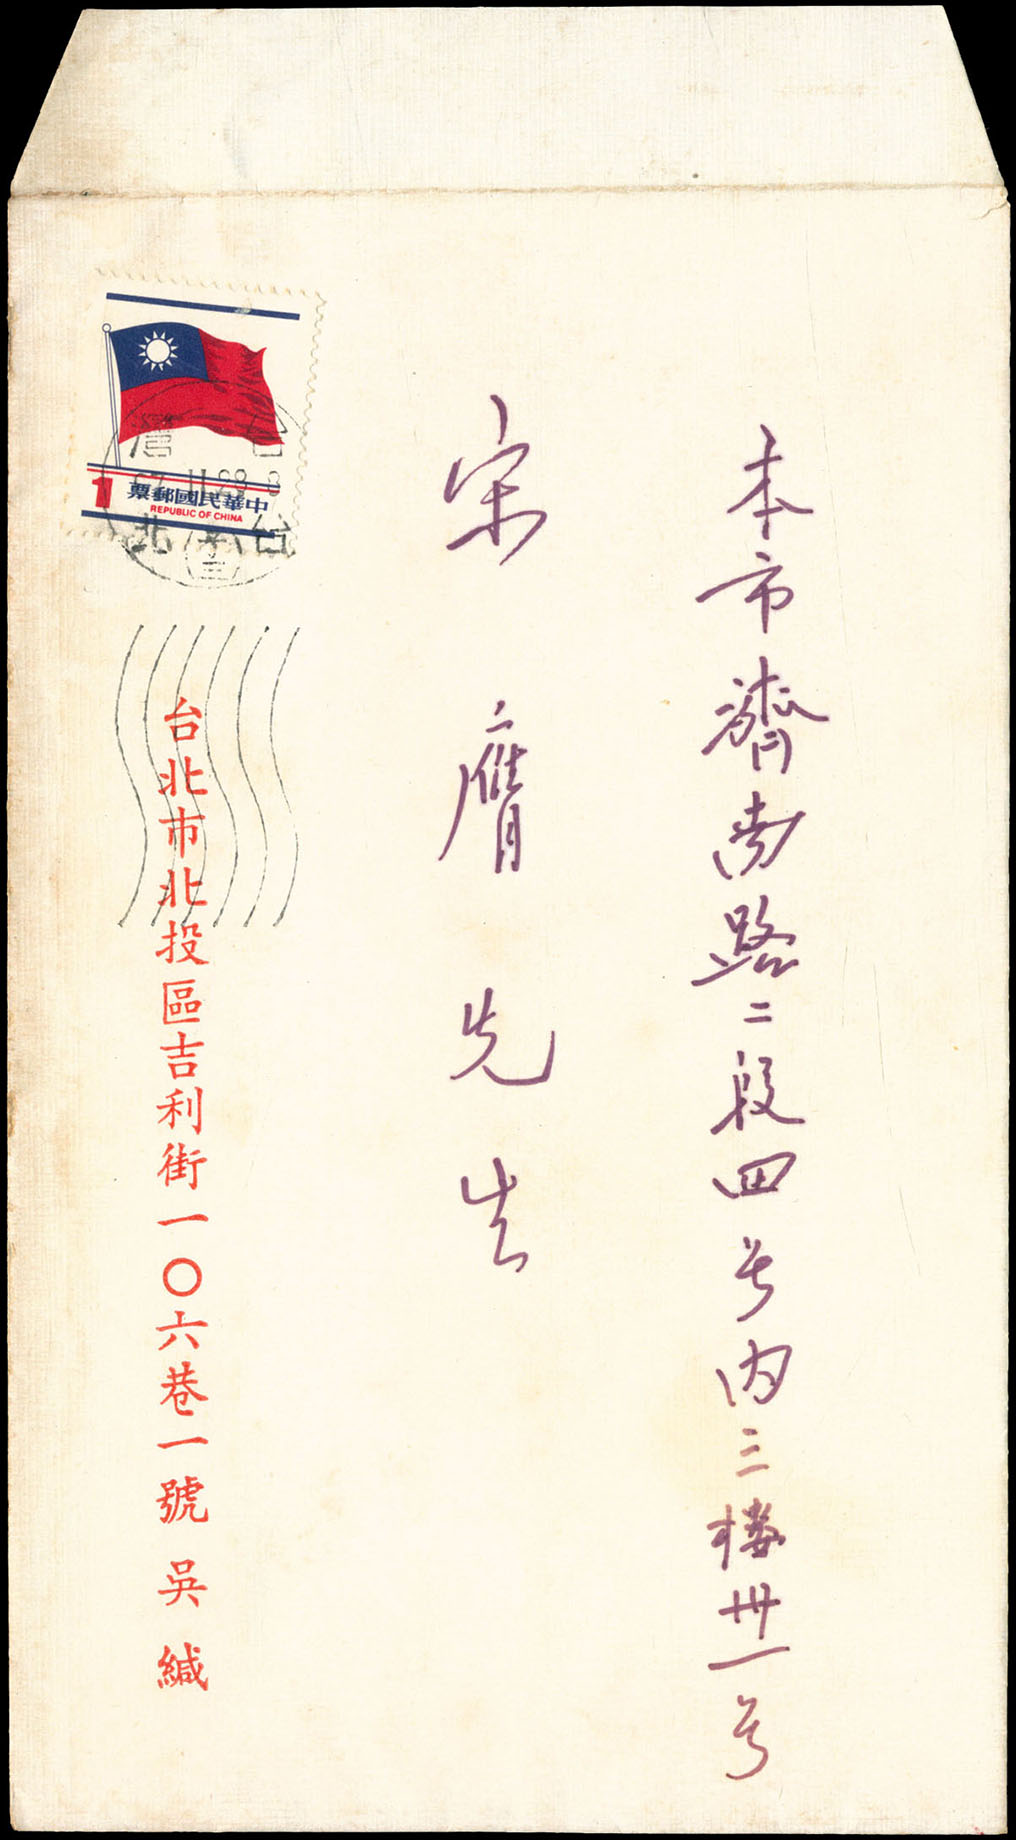 本市濟南路二段四号内三楼卅一号
宋膺先生
1
中華民國郵票
REPUBLIC OF CHINA
台北
台北市北投區吉利街一〇六巷一號 吳 緘